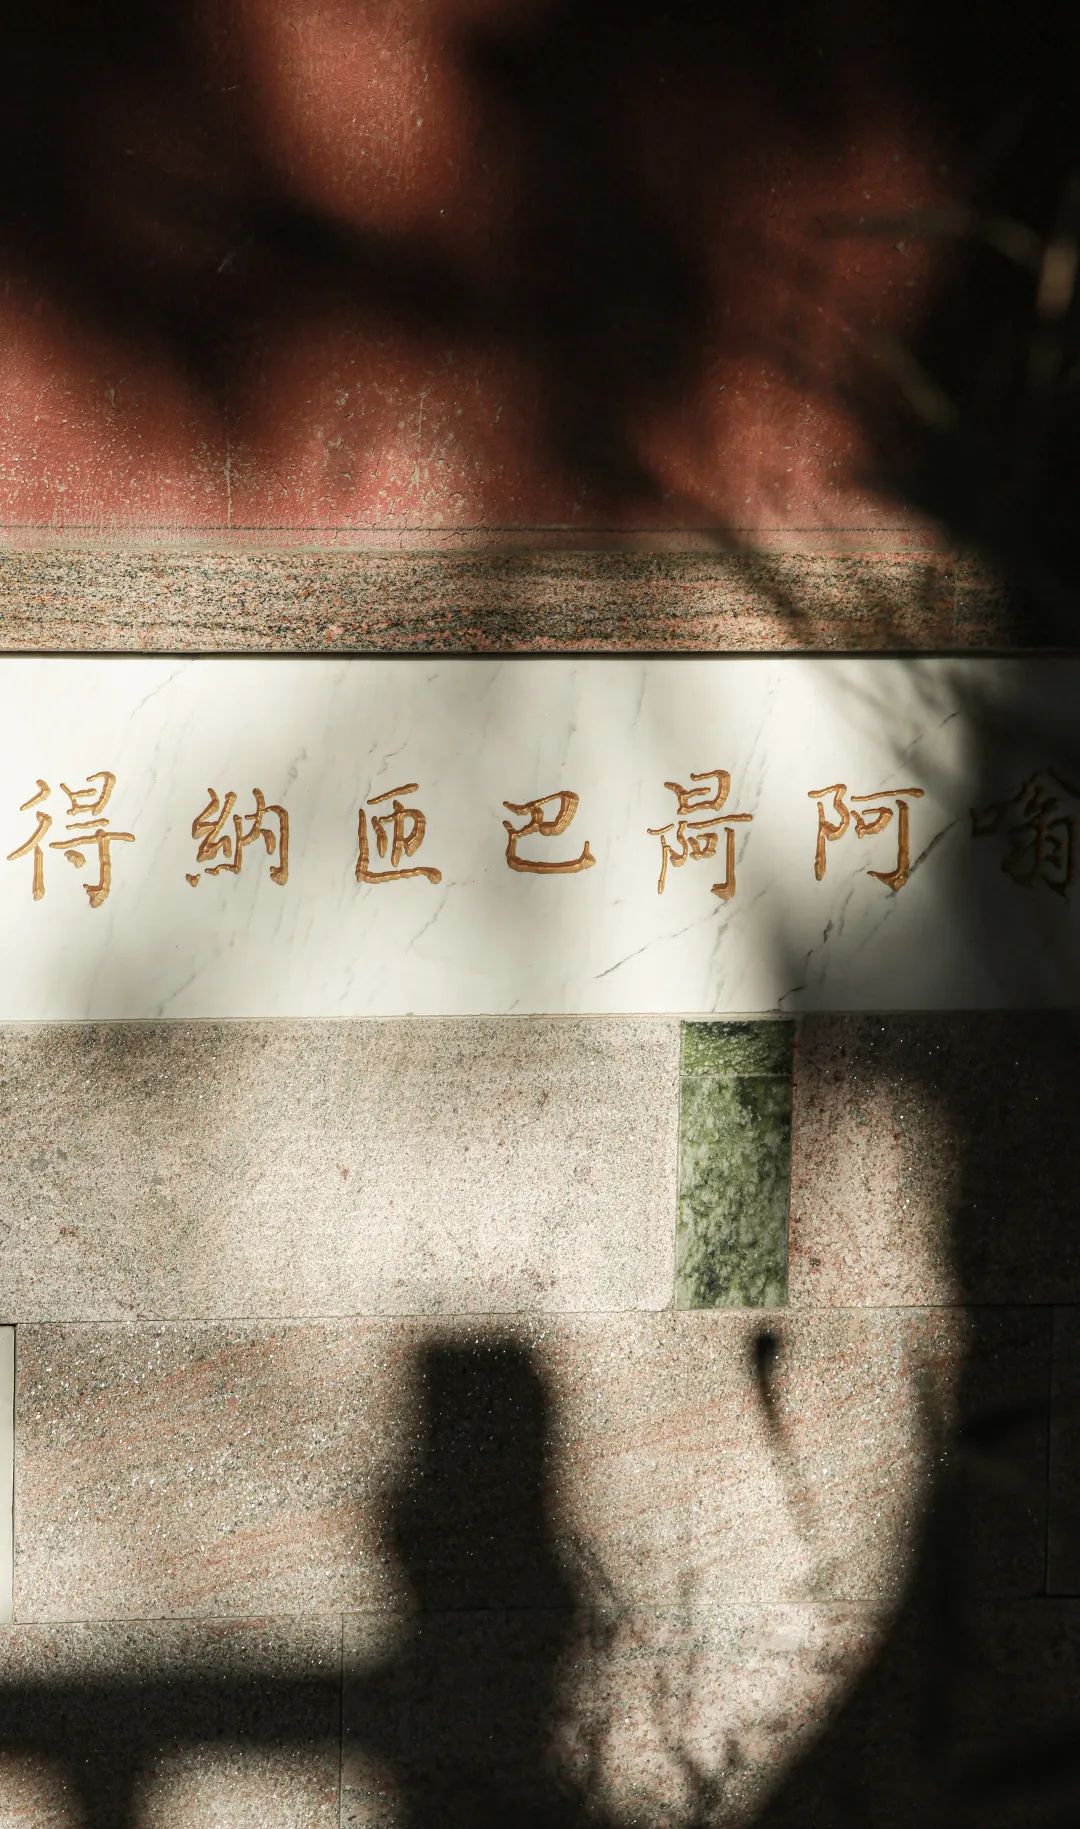 嗡阿巴匝納得